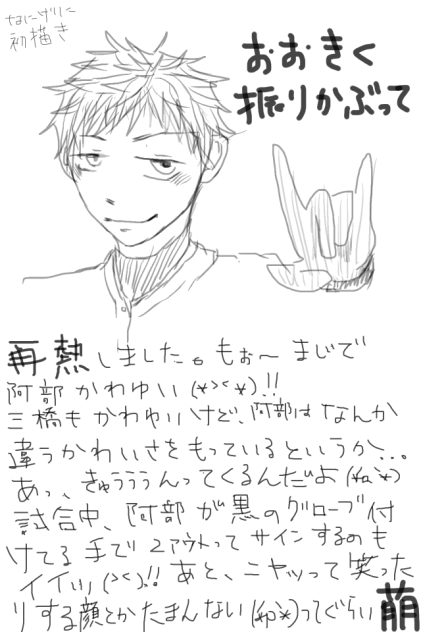 なにげに
初描き
おおきく
振りかぶって
再熱しました。もぉ〜まじで
阿部かわゆい(*><*)!!
三橋もかわゆいけど、阿部はなんか
違うかわいさをもっているというか、、、
あっ、きゅうううんってくるんだよ
試合中、阿部が黒のグローブ付
けてる手で2アウトってサインするのも
イイッッ(><)!!あと、ニヤッって笑った
りする顔とかたまんないってぐらい萌